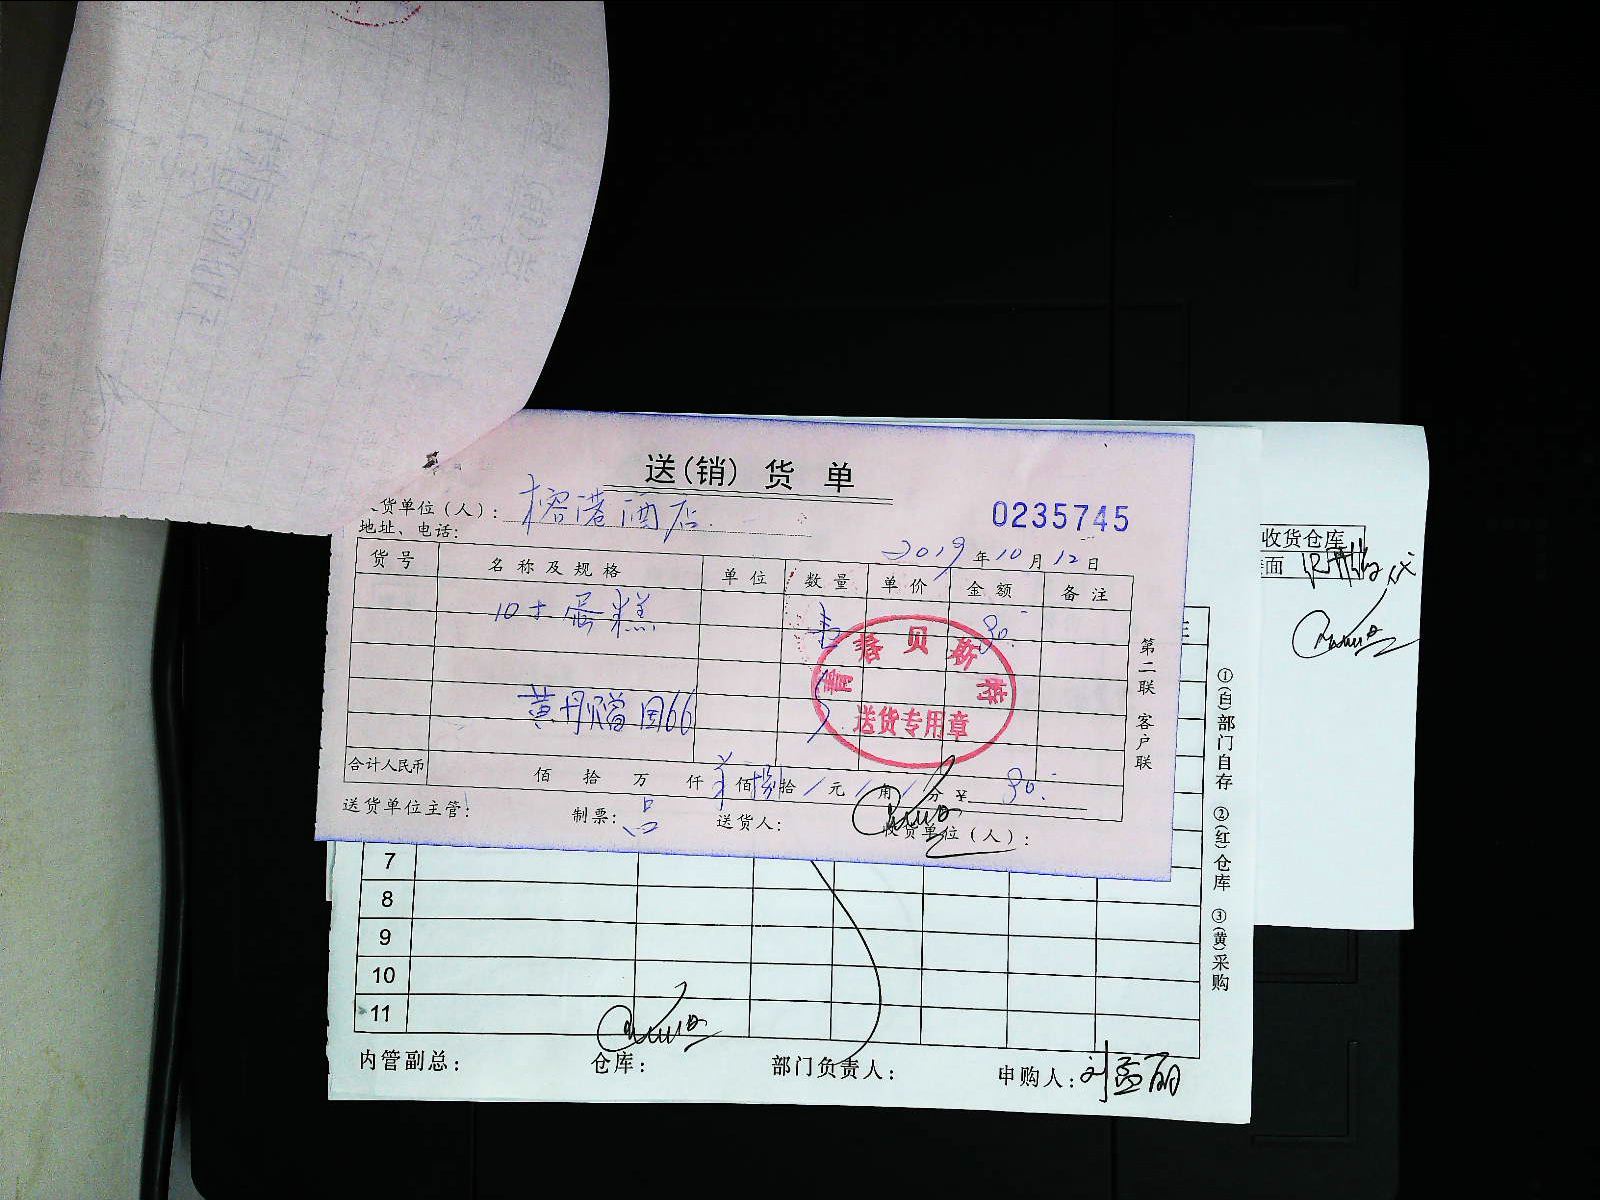 送(销)货单
货单位(人): 榕港酒店
0235745
地址、电话:
2019年10月12日
货号 名称及规格 单位 数量 单价 金额 备注
10寸蛋糕 90.
贝斯
送货专用章
第二联 客户联
合计人民币 佰 拾 万 仟 佰捌拾 元 角 分 ¥
送货单位主管: 制票: 吕 送货人: 收货单位(人):
收货仓库
面
7
8
9
10
11
①(白)部门自存 ②(红)仓库 ③(黄)采购
内管副总: 仓库: 部门负责人: 申购人: 刘孟丽